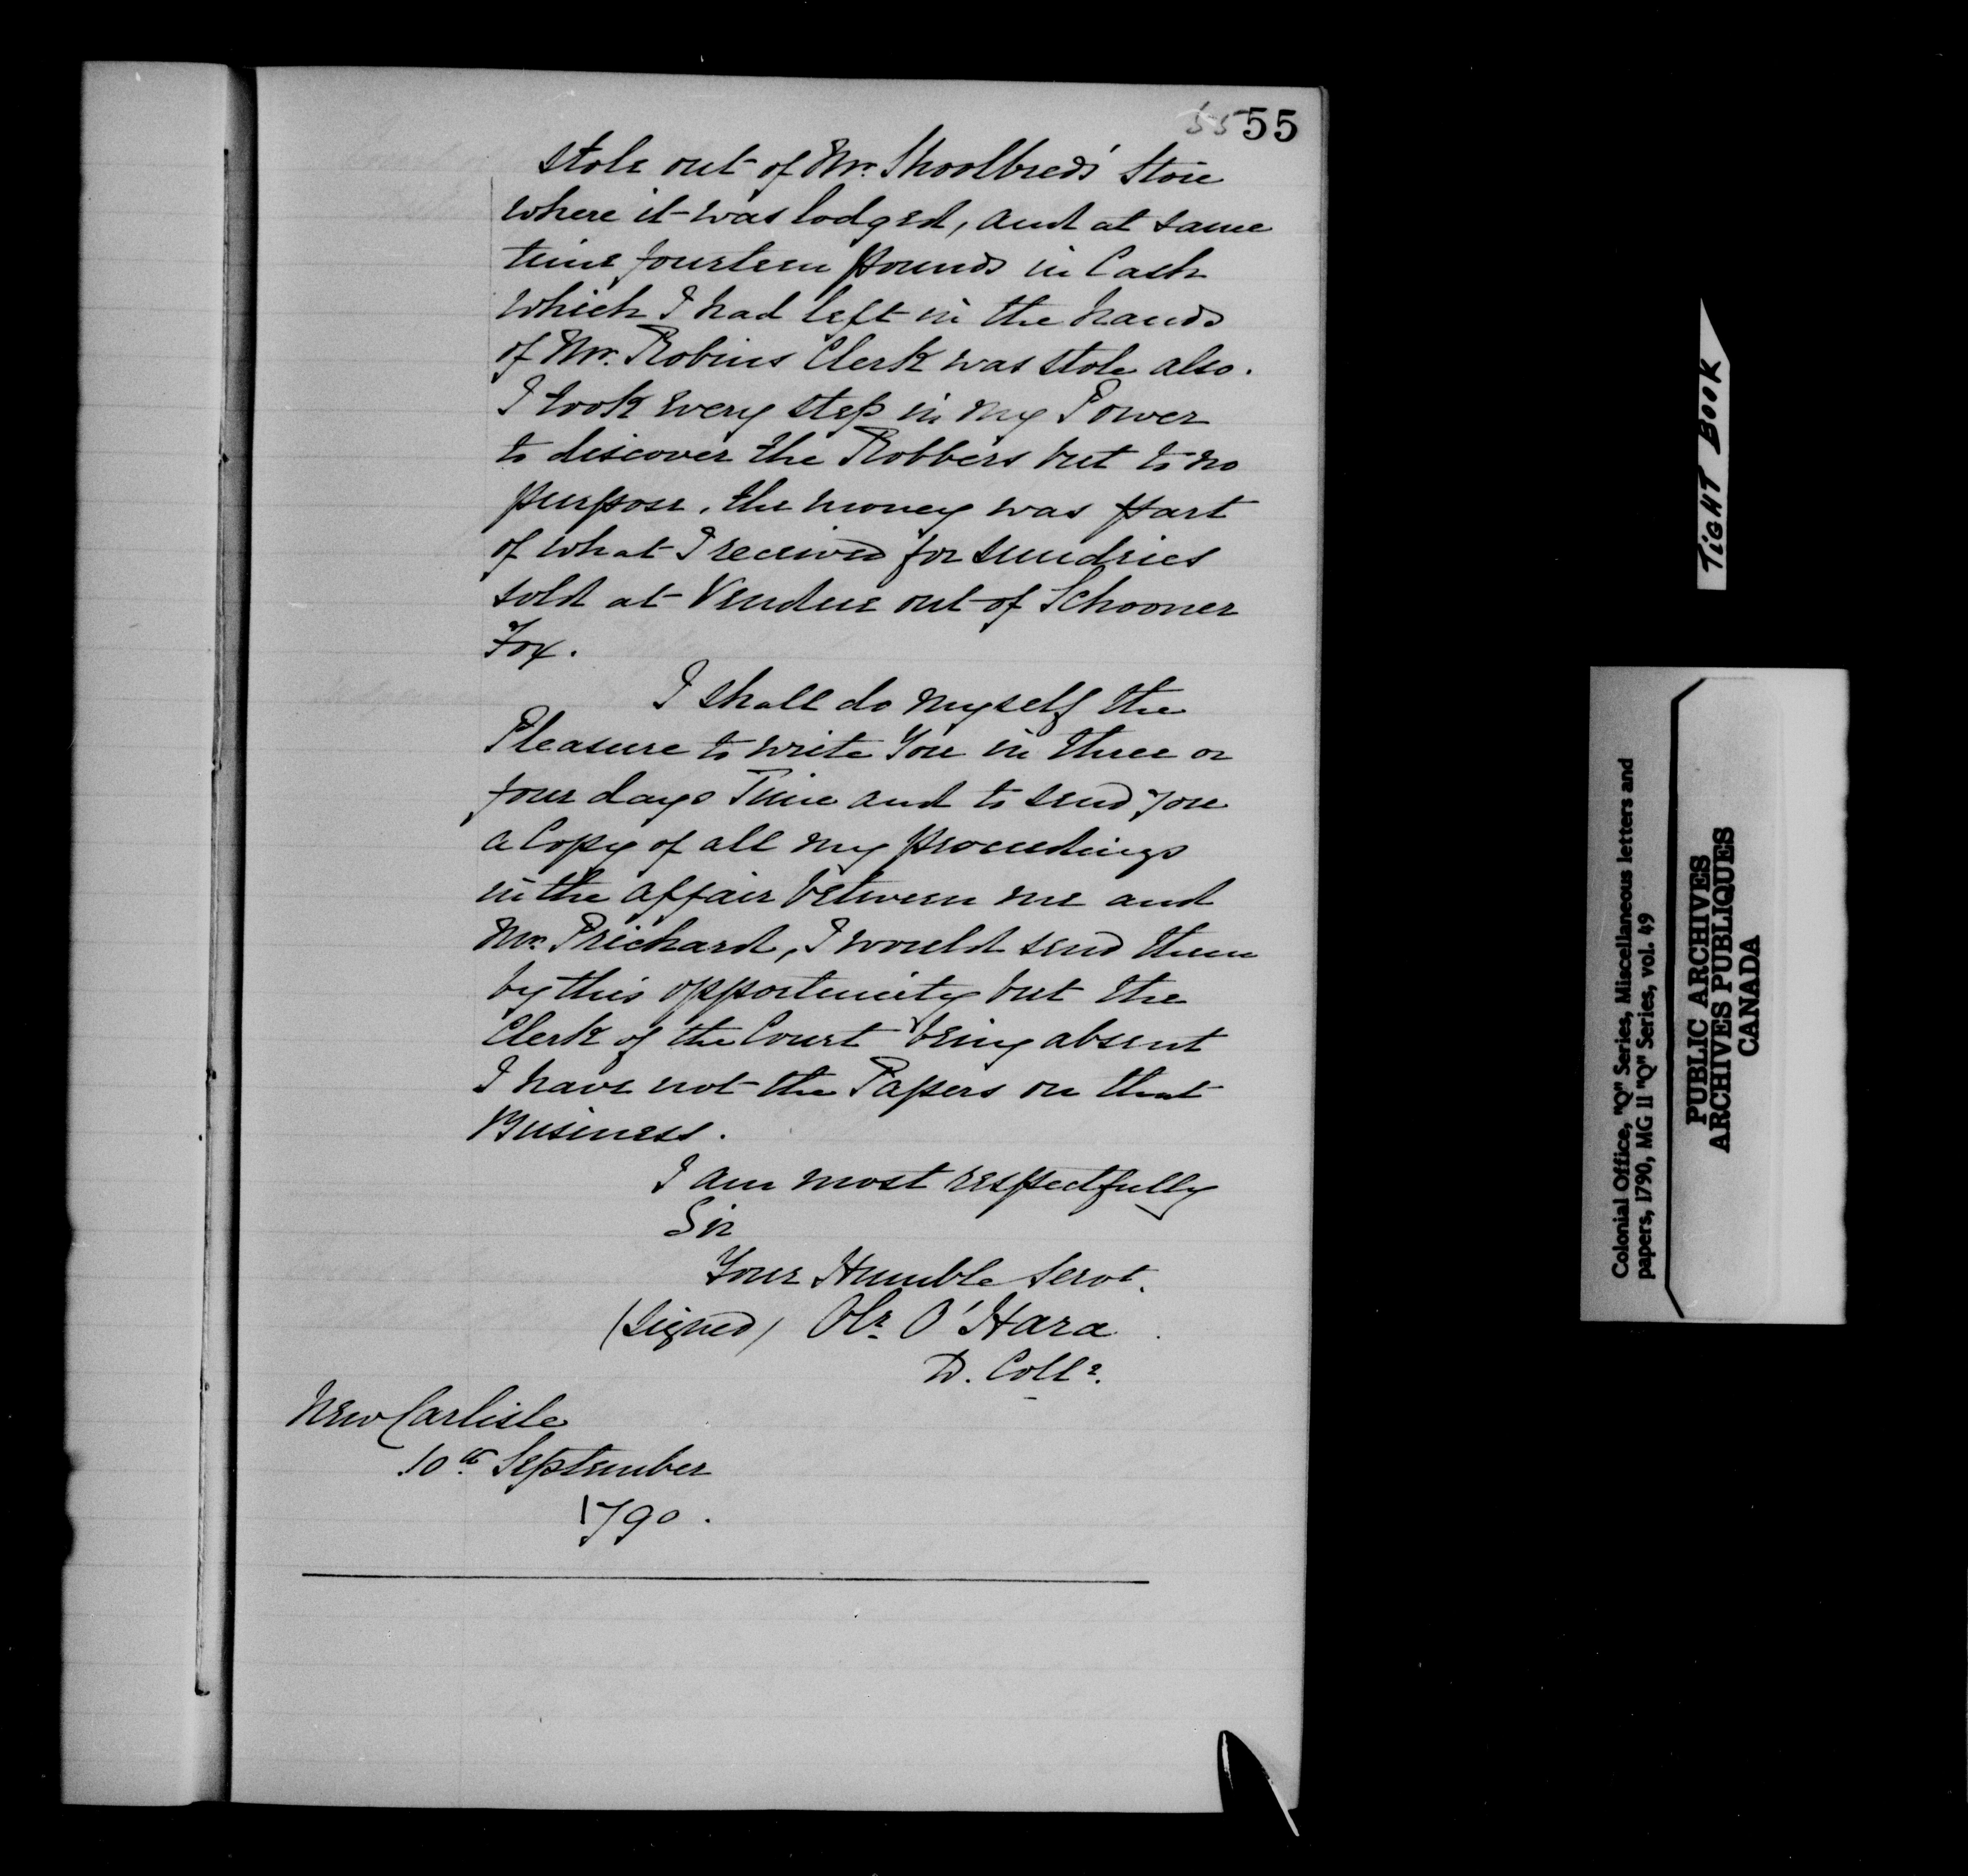 55 55
stole out of Mr. Shoolbreds' Store
where it was lodged, and at same
time fourteen pounds in Cash
which I had left in the hands
of Mr. Robins Clerk was stole also.
I took every step in my Power
to discover the Robbers but to no
purpose, the money was part
of what I received for sundries
sold at Vendue out of Schooner
Fox.
I shall do myself the
Pleasure to write You in three or
four days Time and to send you
a Copy of all my proceedings
in the affair between me and
Mr. Prichard, I would send them
by this opportunity but the
Clerk of the Court being absent
I have not the Papers on that
Business.
I am most respectfully
Sir
Your Humble Servt.
(Signed) Hr. O'Hara
D. Collr.
New Carlisle
10th September
1790.
TIGHT BOOK
Colonial Office, "Q" Series, Miscellaneous letters and
papers, 1790, MG 11 "Q" Series, vol. 49
PUBLIC ARCHIVES
ARCHIVES PUBLIQUES
CANADA